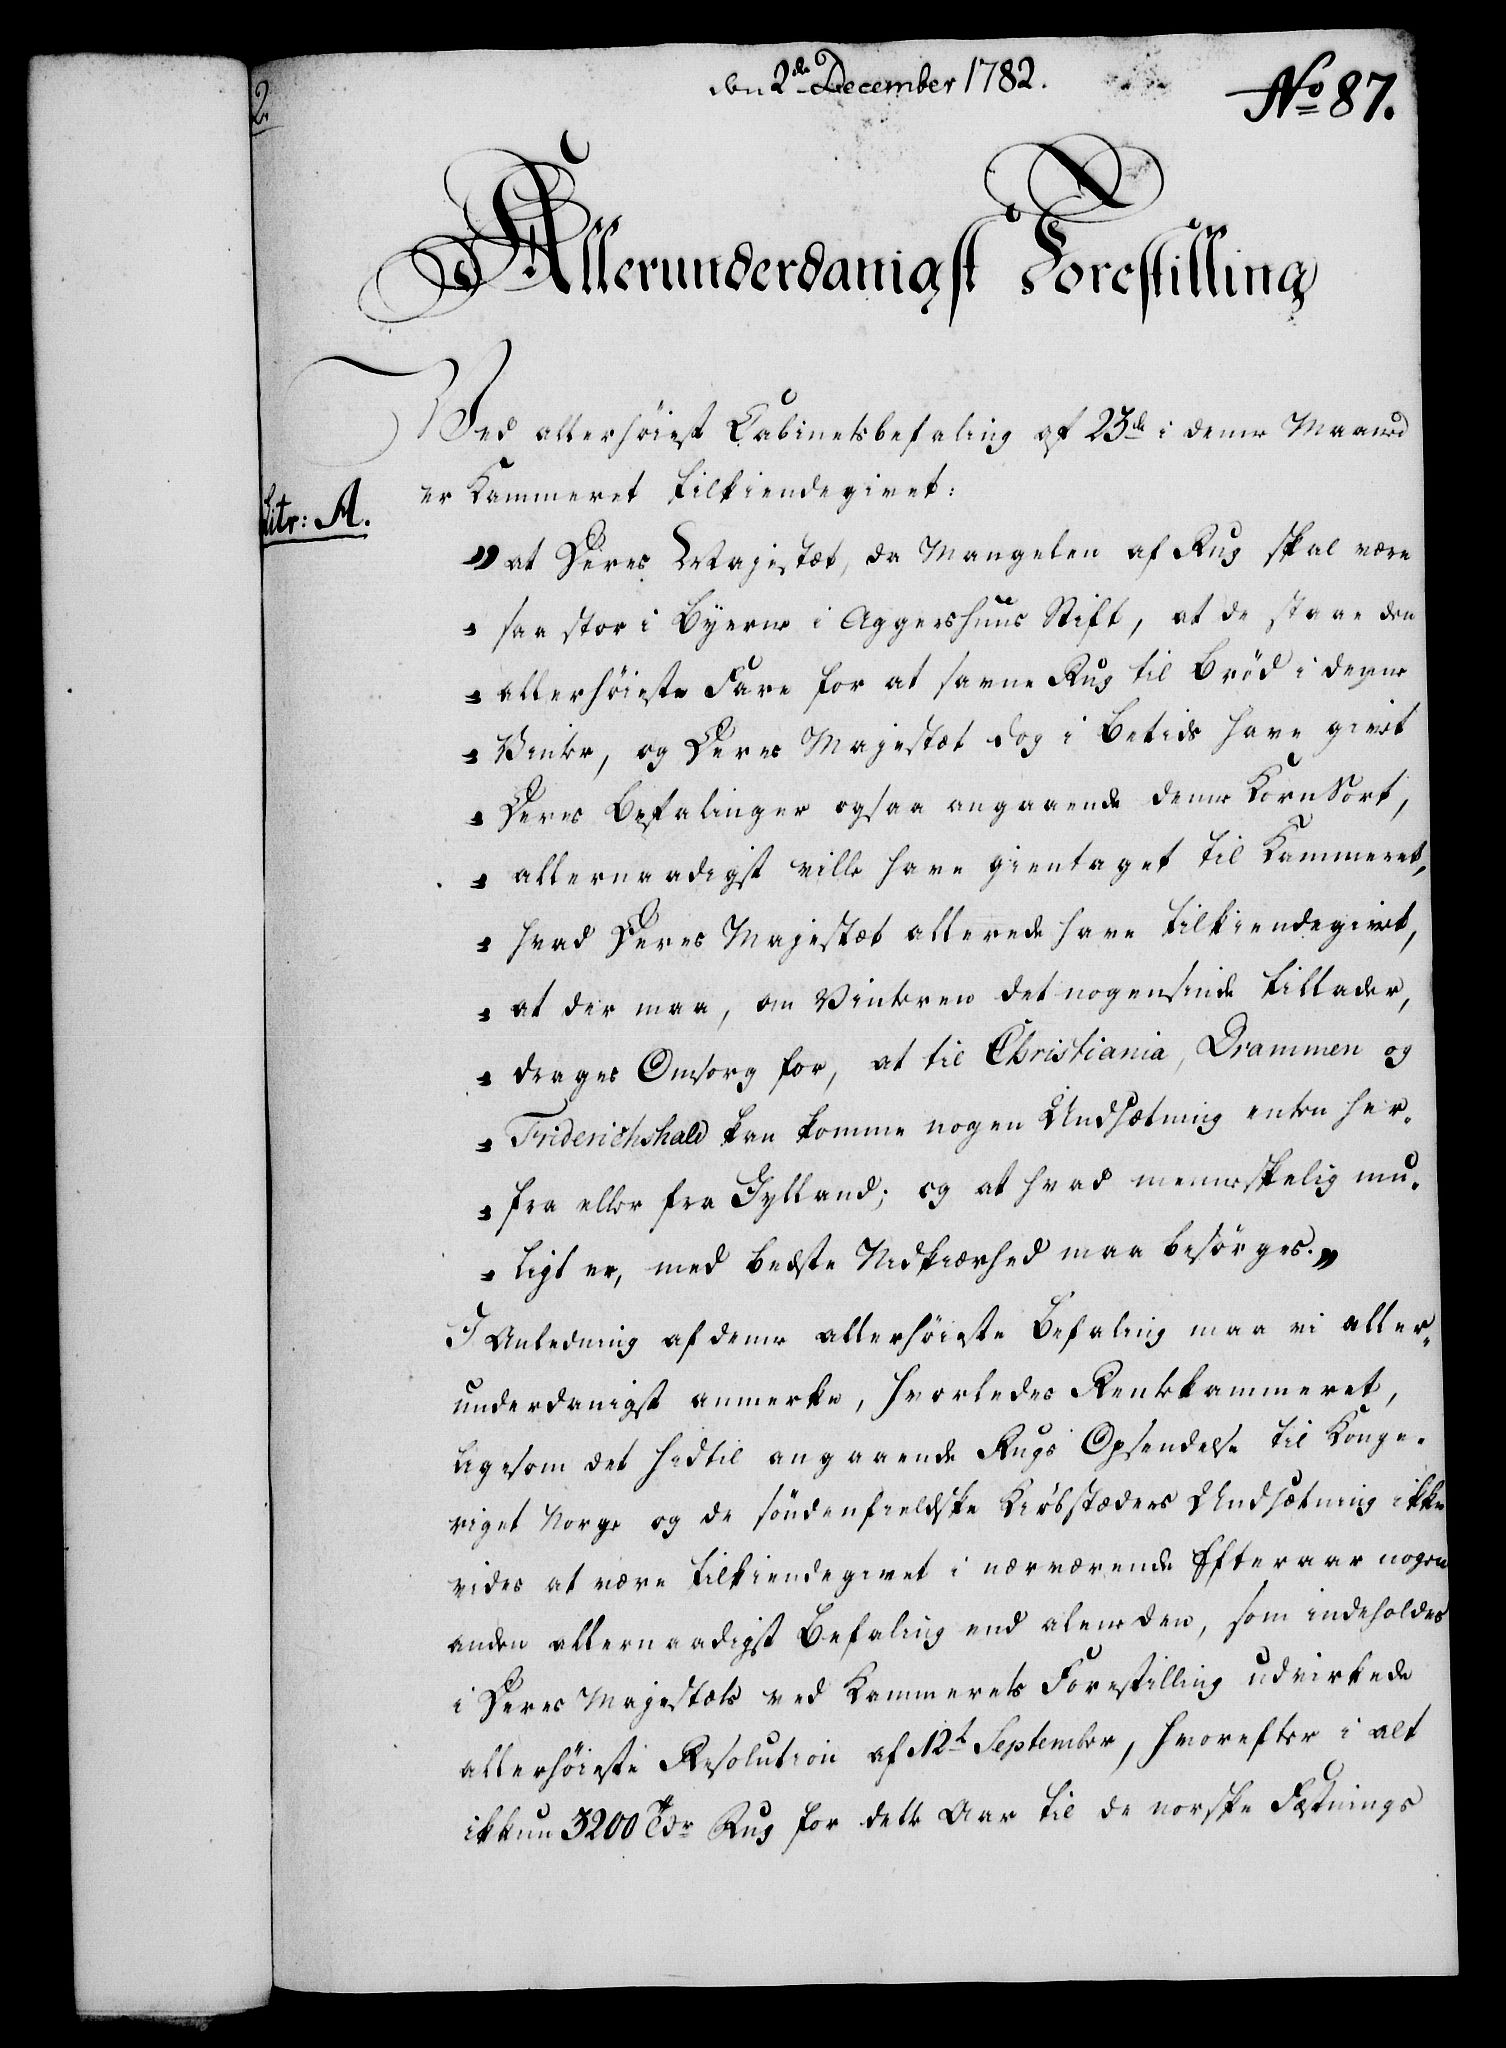 den 2de December 1782.
No 87.
2.
Allerunderdanigst Forestilling
Ved allerhöiest Cabinetsbefaling af 23de i denne Maaned
er Kammeret tilkiendegivet:
Litr: A.
" at Deres Majestæt, da Mangelen af Rug skal være
" saa stor i Byerne i Aggershuus Stift, at de staae den
" allerhöieste Fare for at savne Rug til Bröd i denne
" Vinter, og Deres Majestæt dog i Betids have givet
" Deres Befalinger ogsaa angaaende denne Korn Sort,
" allernaadigst ville have gientaget til Kammeret,
" hvad Deres Majestæt allerede have tilkiendegivet,
" at der maa, om Vinteren det nogensinde tillader,
" drages Omsorg for, at til Christiania, Drammen og
" Friderichshald kan komme nogen Undsætning enten her-
" fra eller fra Jylland; og at hvad menneskelig mu-
" ligt er, med bedste Nidkiærhed maa besörges."
I Anledning af denne allerhöieste Befaling maa vi aller-
underdanigst anmerke, hvorledes Rentekammeret,
ligesom det hidtil angaaende Rugs Opsendelse til Konge-
riget Norge og de söndenfieldske Kiöbstæders Undsætning ikke
vides at være tilkiendegivet i nærværende Efteraar nogen
anden allernaadigst Befaling end alene den, som indeholdes
i Deres Majestæts ved Kammerets Forestilling udvirkede
allerhöieste Resolution af 12t September, hvorefter i alt
ikkun 3200 Tdr Rug for dette Aar til de norske Fæstnings